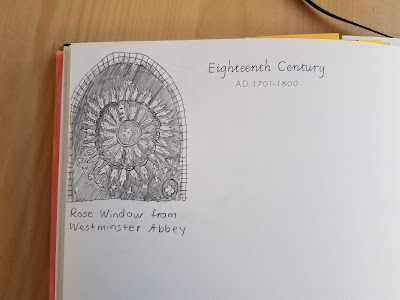 Eighteenth Century
AD 1701-1800
Rose Window from
Westminster Abbey